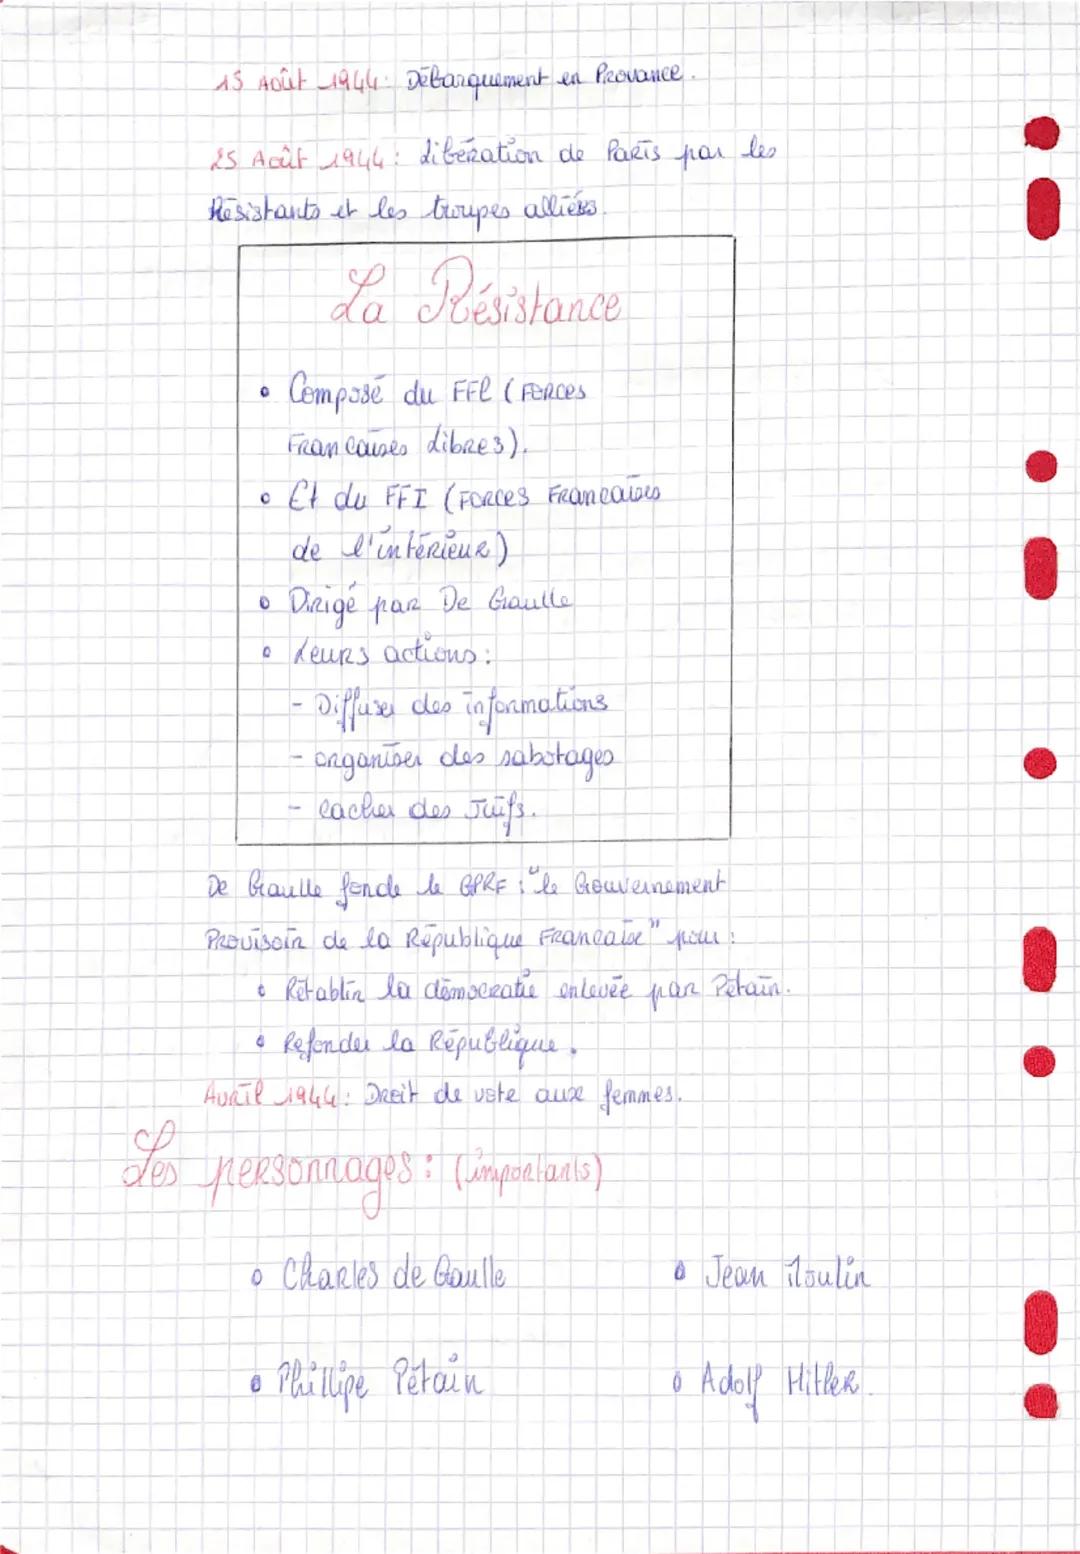 15 Août 1944: Débarquement en Provance.
25 Août 1944: Libération de Paris par les
Résistants et les troupes alliées.
La Résistance
• Composé du FFL (Forces
Francaises Libres).
• Et du FFI (Forces Francaises
de l'intérieur)
• Dirigé par De Gaulle
• Leurs actions:
- Diffuser des informations
- organiser des sabotages
- cacher des Juifs.
De Gaulle fonde le GPRF : "le Gouvernement
Provisoir de la République Francaise" pour :
• Rétablir la démocratie enlevée par Pétain.
• Refonder la République.
Avril 1944: Droit de vote aux femmes.
Les personnages: (importants)
• Charles de Gaulle • Jean Moulin
• Phillipe Pétain • Adolf Hitler.